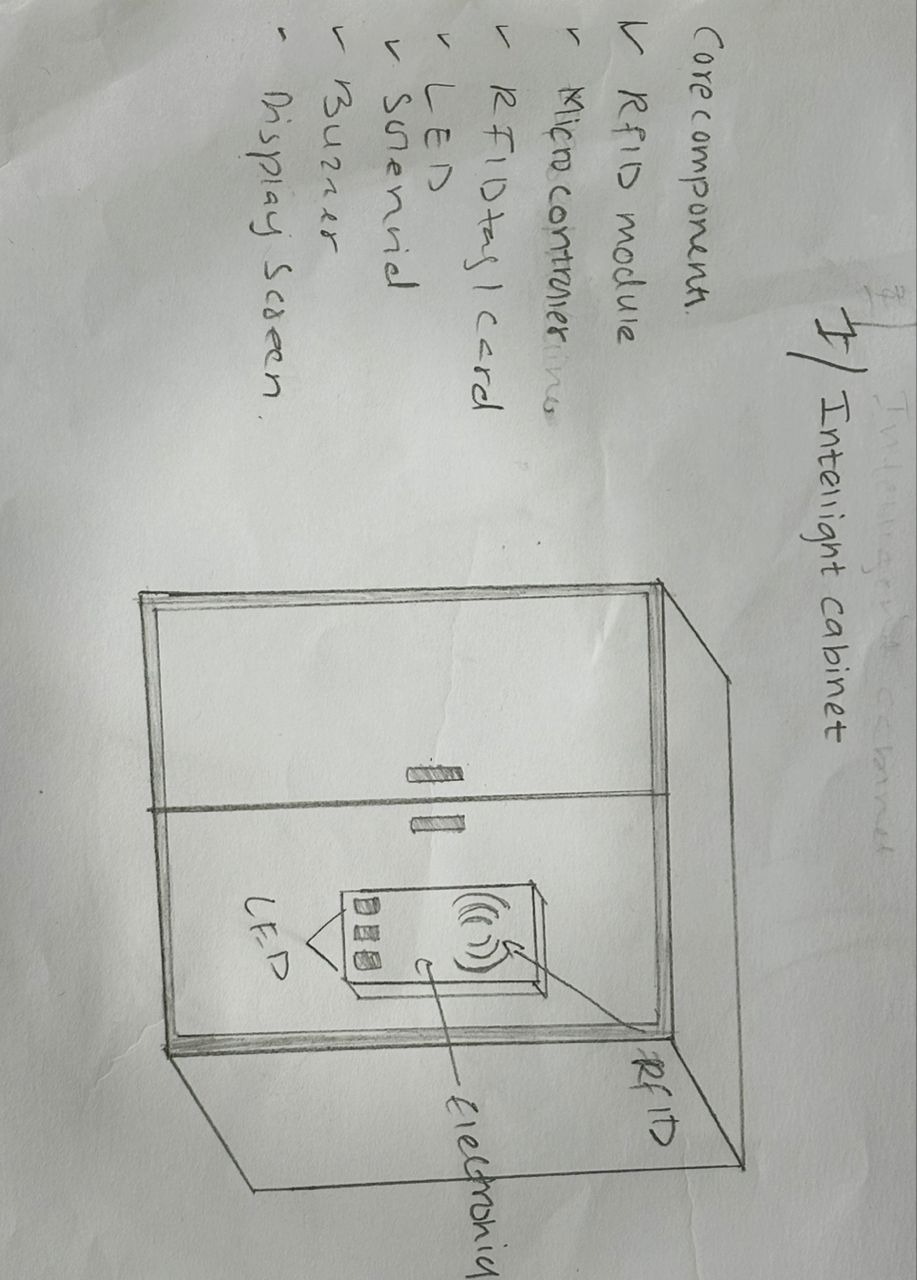 1/ Intellight cabinet
Core components.
RFID module
Microcontroller
RFID tag / card
LED
Solenoid
Buzzer
Display Screen.
RFID
Electronic
LED